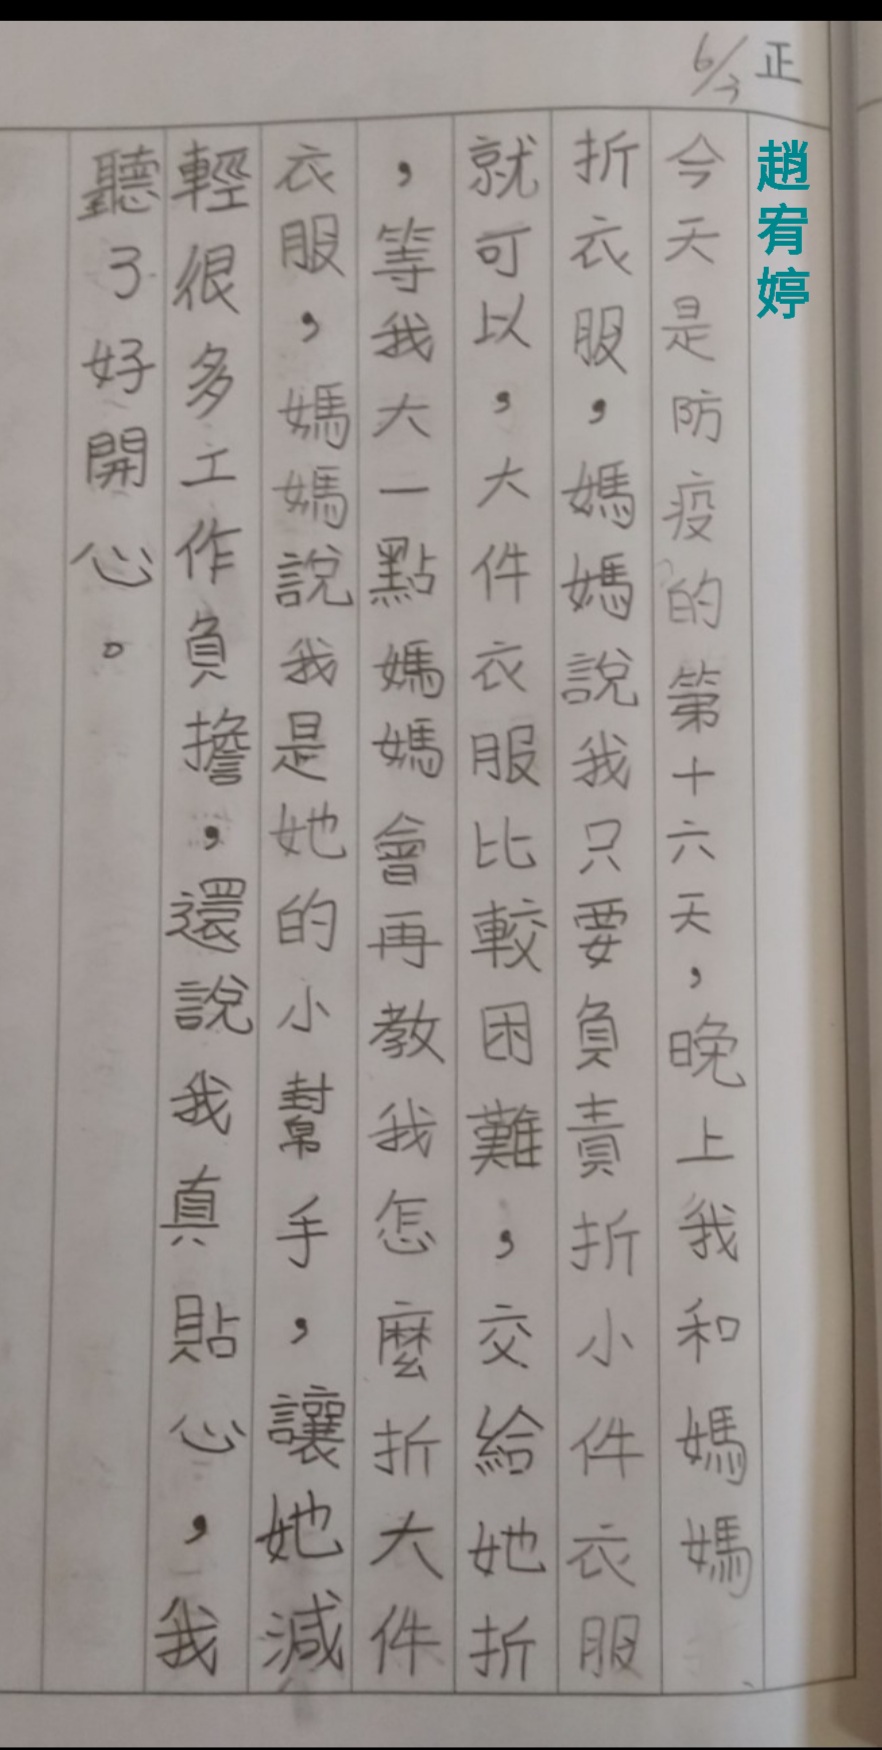 正
6/3
趙宥婷
今天是防疫的第十六天，晚上我和媽媽
折衣服，媽媽說我只要負責折小件衣服
就可以，大件衣服比較困難，交給她折
，等我大一點媽媽會再教我怎麼折大件
衣服，媽媽說我是她的小幫手，讓她減
輕很多工作負擔，還說我真貼心，我
聽了好開心。